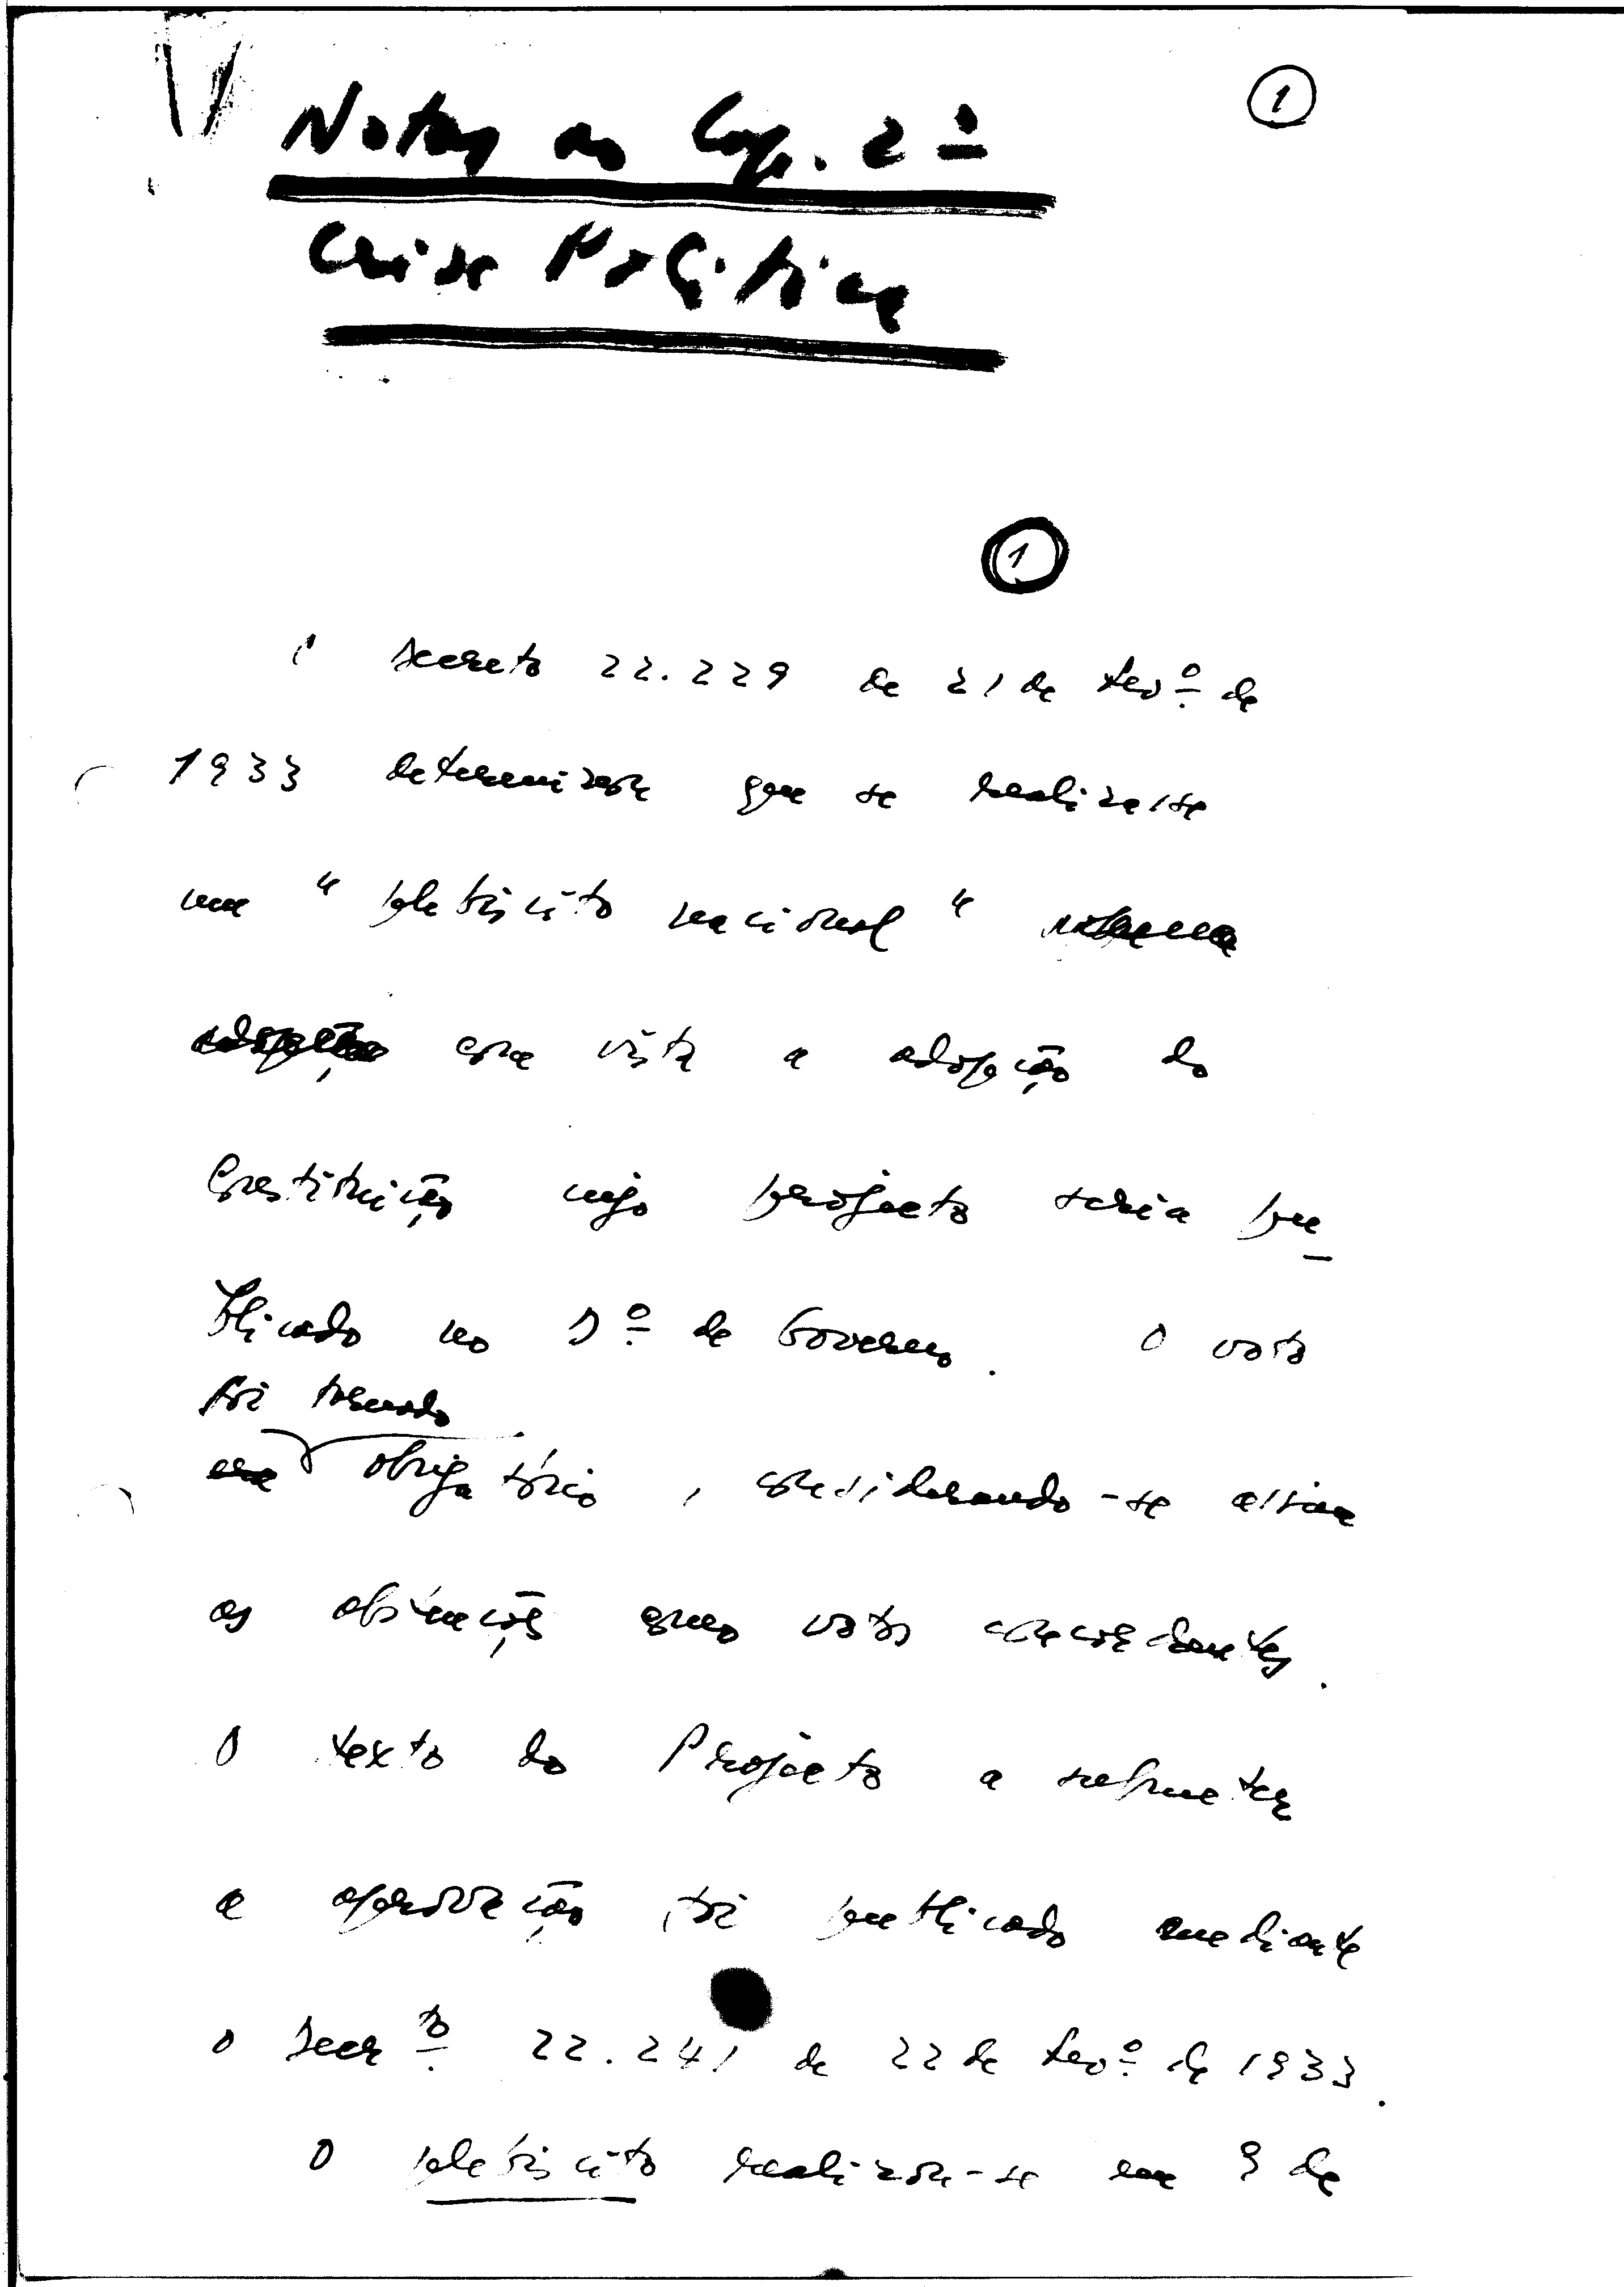 1
Notas ao Cap. 2º
Crise Política
1
O Decreto 22.229 de 21 de Fevº de
1933 determinou que se realizasse
um "plebiscito nacional"
com vista a adopção do
Constituição cujo projecto seria pu-
blicado no Dº de Governo. O voto
foi tornado
era obrigatório, considerando-se assim
as abstenções como votos concordantes.
O texto do Projecto a submeter
a aprovação foi publicado mediante
o Decrto 22.241 de 22 de Fevº de 1933.
O plebiscito realizou-se em 9 de